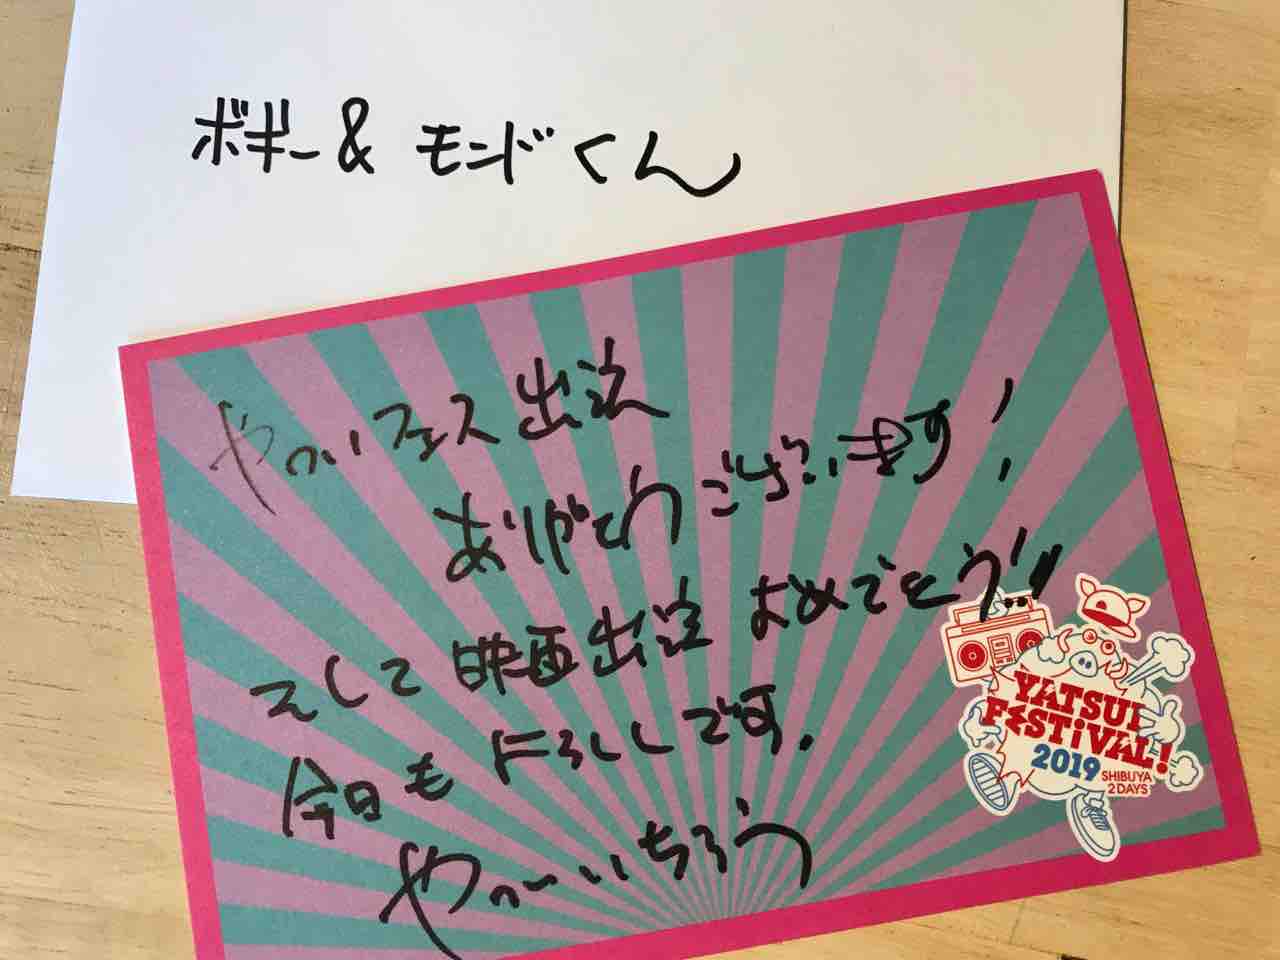 ボギー& モンドくん
やついフェス出演
ありがとうございます!
そして映画出演 おめでとう!!
今日もよろしくです.
やついいちろう
YATSUI
FESTiVAL!
2019 SHIBUYA
2DAYS